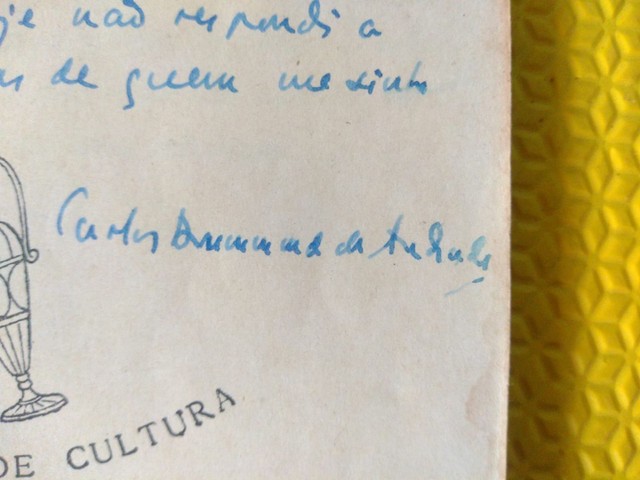 je não respondi a
de quem me sinto
Carlos Drummond de Andrade
DE CULTURA